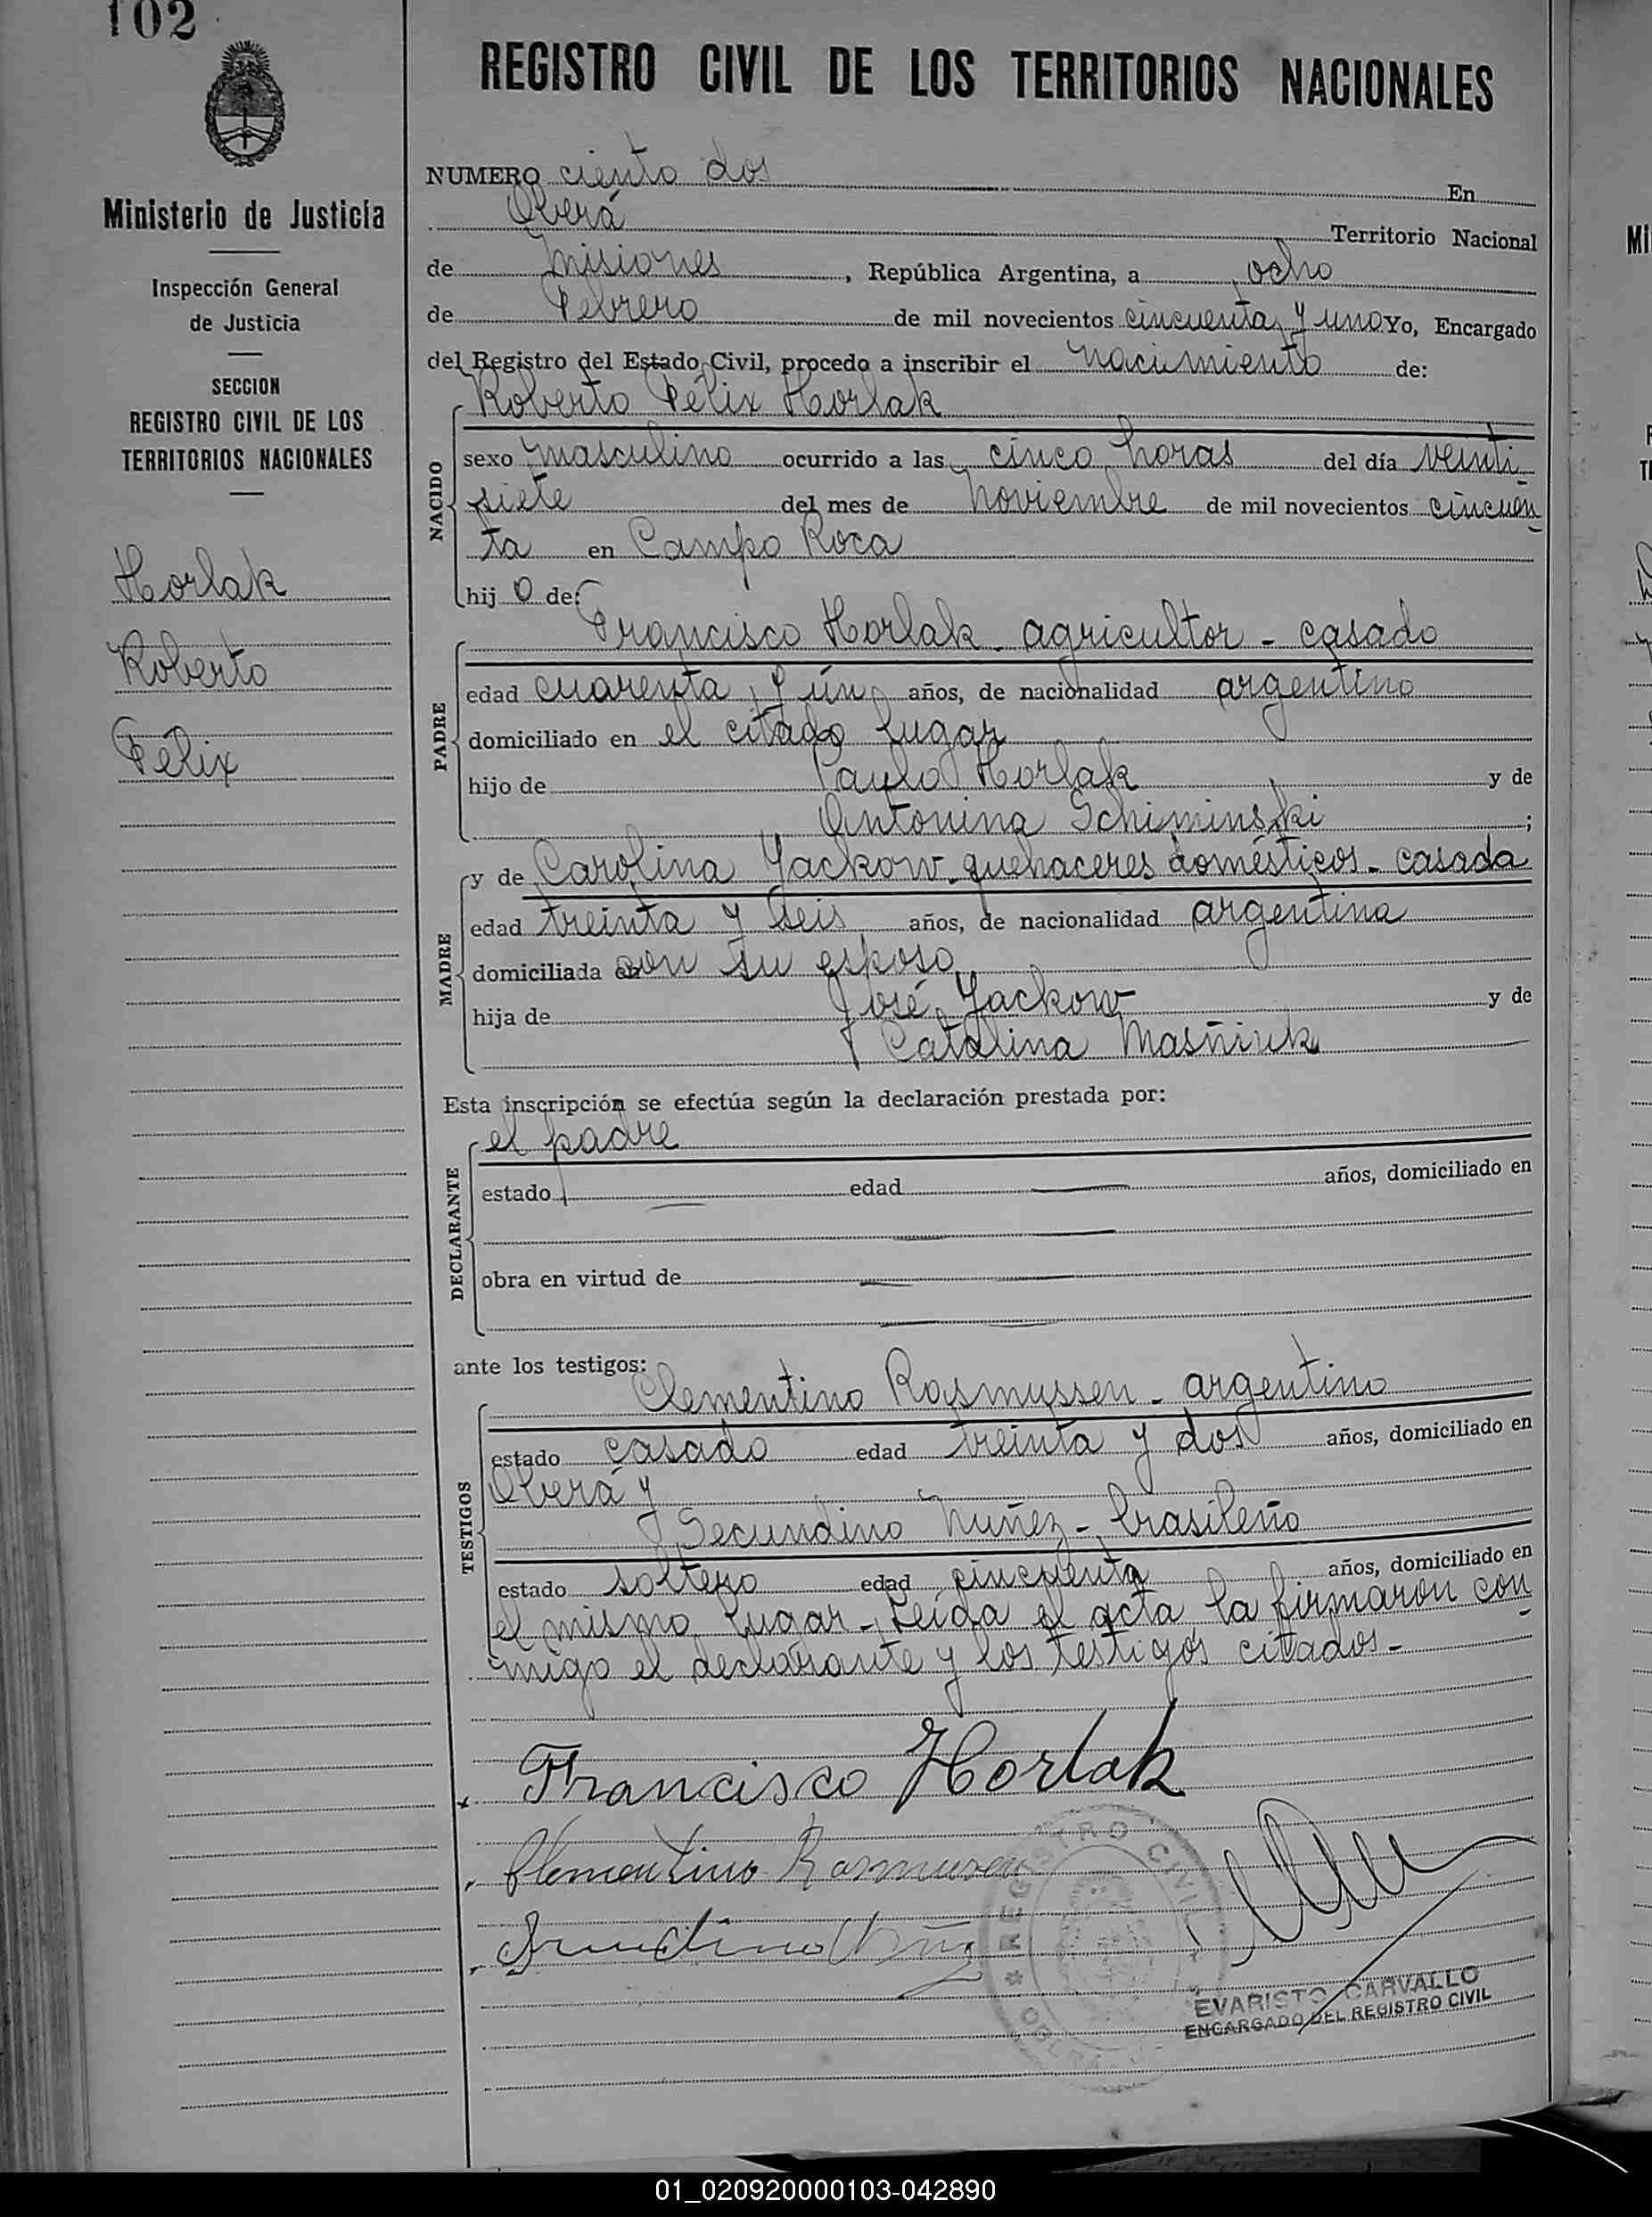 102
Ministerio de Justicia
Inspección General
de Justicia
SECCION
REGISTRO CIVIL DE LOS
TERRITORIOS NACIONALES
Horlak
Roberto
Félix
REGISTRO CIVIL DE LOS TERRITORIOS NACIONALES
NUMERO ciento dos En
Oberá Territorio Nacional
de Misiones, República Argentina, a ocho
de Febrero de mil novecientos cincuenta y uno Yo, Encargado
del Registro del Estado Civil, procedo a inscribir el nacimiento de:
Roberto Félix Horlak
NACIDO
sexo masculino ocurrido a las cinco horas del día veinti
siete del mes de Noviembre de mil novecientos cincuen
ta en Campo Roca
hijo de:
Francisco Horlak - agricultor - casado
PADRE
edad cuarenta y un años, de nacionalidad argentino
domiciliado en el citado lugar
hijo de Paulo Horlak y de
Antonina Schiminski;
y de Carolina Yackow - quehaceres domésticos - casada
MADRE
edad treinta y seis años, de nacionalidad argentina
domiciliada con su esposo
hija de José Yackow y de
Catalina Masñiuk
Esta inscripción se efectúa según la declaración prestada por:
el padre
DECLARANTE
estado — edad — años, domiciliado en
obra en virtud de —
ante los testigos:
Clementino Rasmussen - argentino
TESTIGOS
estado casado edad treinta y dos años, domiciliado en
Oberá y
Secundino Nuñez - brasileño
estado soltero edad cincuenta años, domiciliado en
el mismo lugar - Leída el acta la firmaron con
migo el declarante y los testigos citados -
Francisco Horlak
Clementino Rasmussen
REGISTRO CIVIL
EVARISTO CARVALLO
ENCARGADO DEL REGISTRO CIVIL
01_020920000103-042890